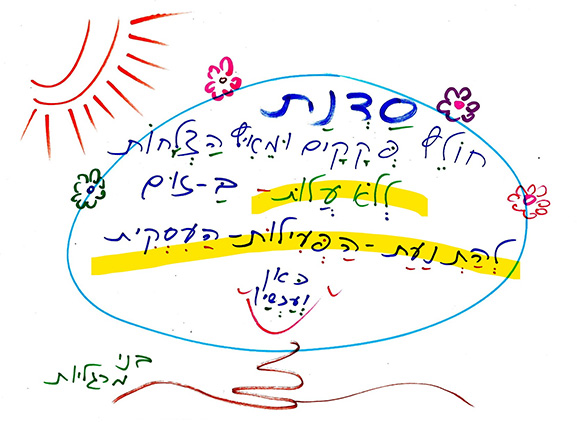 סַדְנַת
חוֹלֵץ פְּקָקִים וּמֵאִיץ הַצְלָחוֹת
לְלֹא עֲלוּת - בַּ-זוּם
לְהַתְנָעַת - הַפְּעִילוּת - הָעִסְקִית
כָּאן
וְעַכְשָׁיו
בני
מרגליות